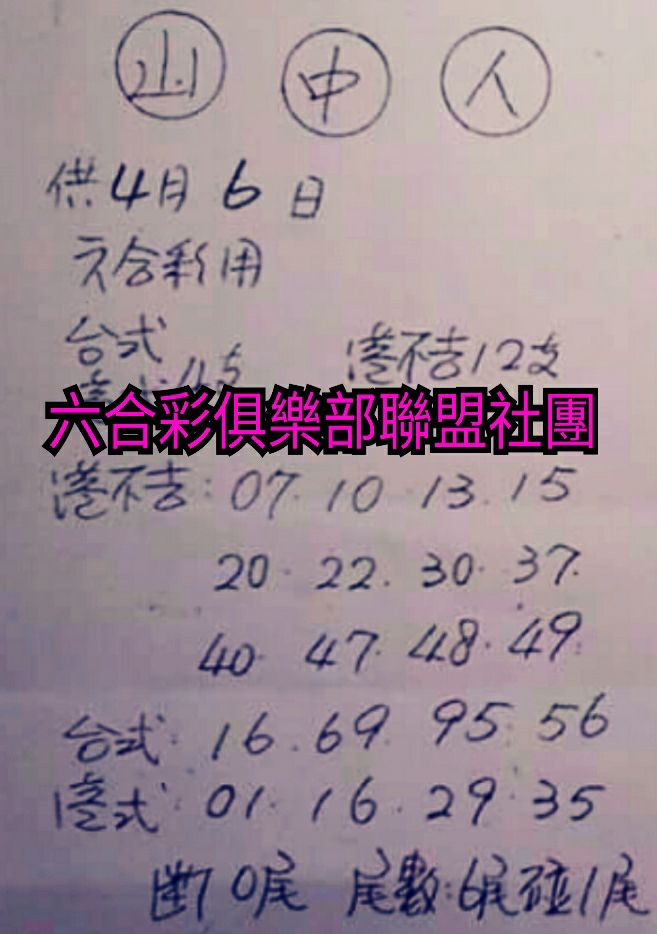 山 中 人
供4月6日
六合彩用
台式 港不吉12支
六合彩俱樂部聯盟社團
港不吉:07.10.13.15
20.22.30.37.
40.47.48.49.
台式:16.69.95.56
港式:01.16.29.35
斷0尾 尾數:6尾碰1尾